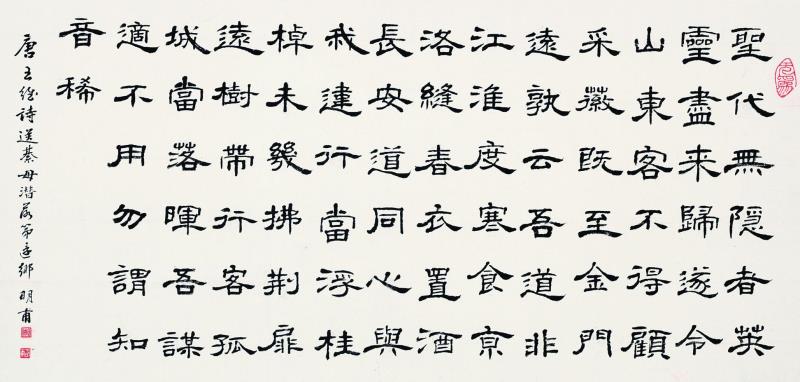 聖代無隱者英
靈盡來歸遂令
山東客不得顧
采薇既至金門
遠孰云吾道非
江淮度寒食京
洛縫春衣置酒
長安道同心與
我違行當浮桂
棹未幾拂荊扉
遠樹帶行客孤
城當落暉吾謀
適不用勿謂知
音稀
唐王維詩送綦母潛落第還鄉 明甫